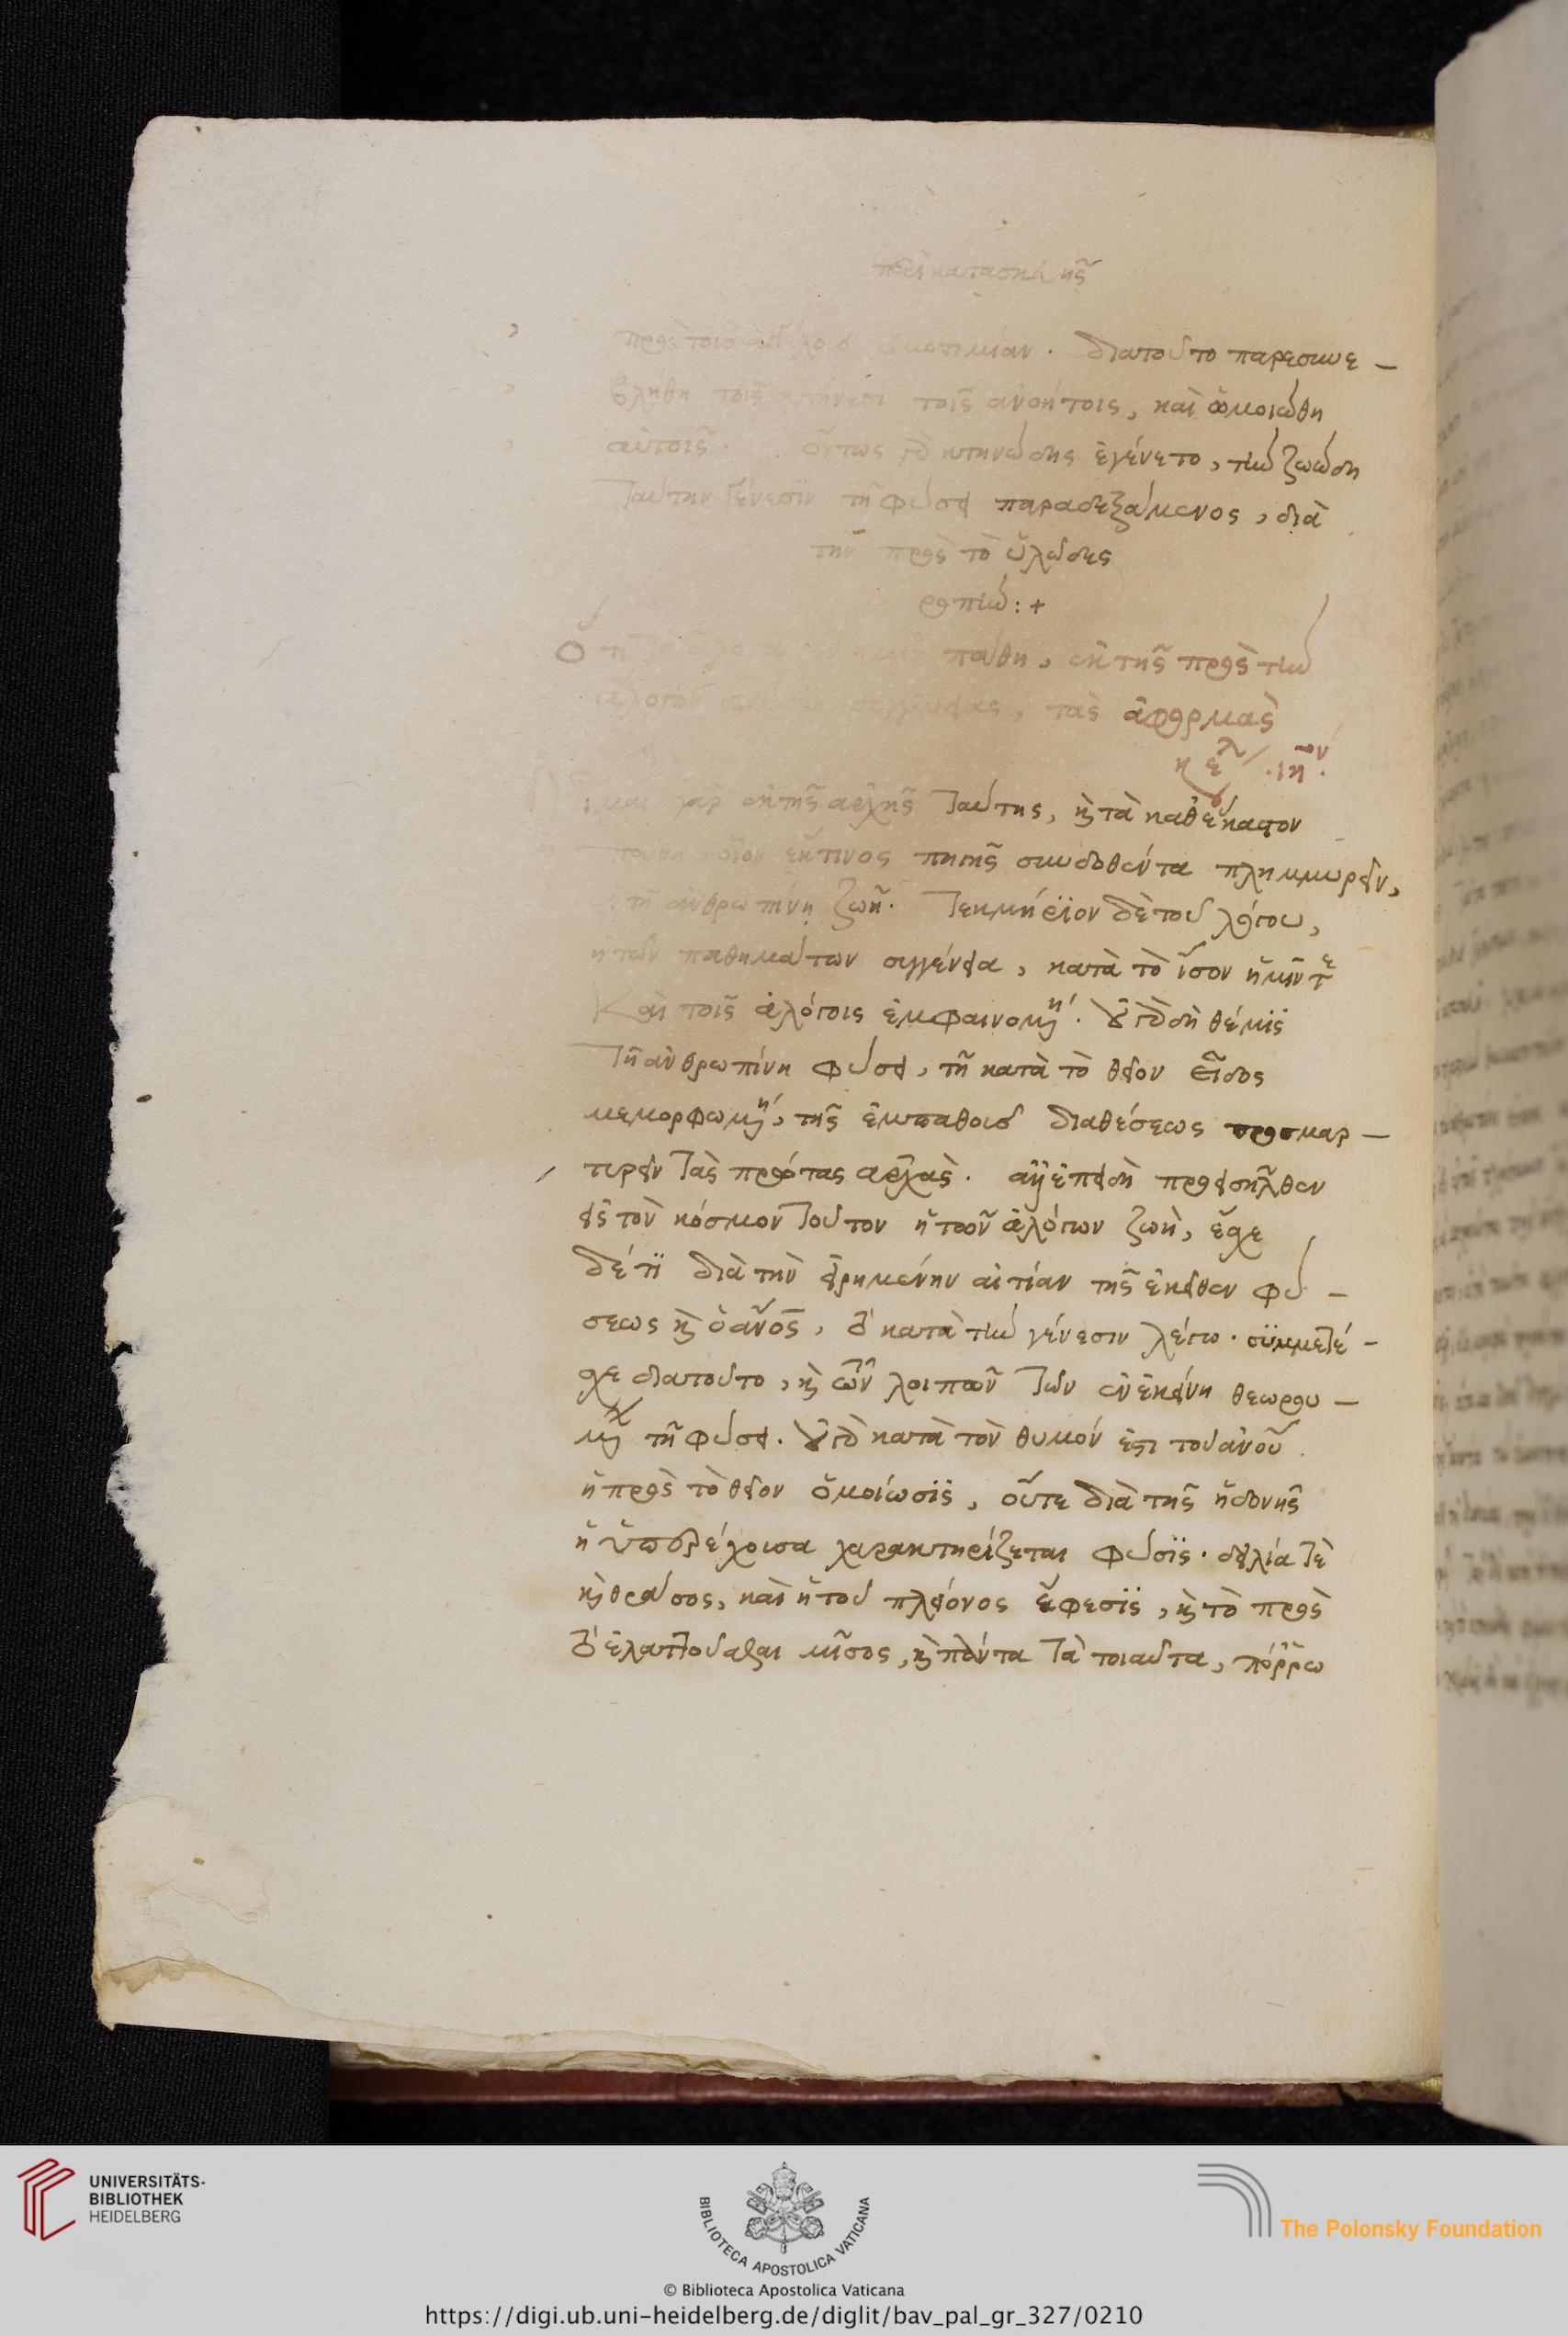 περὶ κατασκευῆς
πρὸς τοὺς ἀγγέλους ὁμοτιμίαν. διατοῦτο παρασυνε-
βλήθη τοῖς κτήνεσι τοῖς ἀνοήτοις, καὶ ὡμοιώθη
αὐτοῖς. ὄντως γὰρ κτηνώδης ἐγένετο, τὴν ζωώδη
ταύτην γένεσιν τῆ φύσει παραδεξάμενος, διὰ
τὴν πρὸς τὸ ὑλῶδες
ροπήν:+
Ὅτι τὰ ἄλογα ἐν ἡμῖν πάθη, ἐκ τῆς πρὸς τὴν
ἄλογον φύσιν συγγενείας, τὰς ἀφορμὰς
κεφλ/ .ιη ον.
Οἶμαι γὰρ ἐκ τῆς ἀρχῆς ταύτης, κὶ τὰ καθέκαστον
πάθη οἷον ἔκ τινος πηγῆς συνδοθέντα πλημμυρεῖν,
ἐν τῆ ἀνθρωπίνη ζωῆ. τεκμήριον δὲ τοῦ λόγου,
ἡ τῶν παθημάτων συγγένεια, κατὰ τὸ ἴσον ἡμῖν τε
Καὶ τοῖς ἀλόγοις ἐμφαινομένη. οὐ γὰρ δὴ θέμις
τῆ ἀνθρωπίνη φύσει, τῆ κατὰ τὸ θεῖον εἶδος
μεμορφωμένη, τῆς ἐμπαθοῦς διαθέσεως προσμαρ-
τυρεῖν τὰς πρώτας ἀρχάς. ἀλλ' ἐπειδὴ προεισῆλθεν
εἰς τὸν κόσμον τοῦτον ἡ τῶν ἀλόγων ζωὴ, ἔσχε
δέ τι διὰ τὴν εἰρημένην αἰτίαν τῆς ἐκεῖθεν φύ-
σεως κὶ ὁ ἄνος, τὸ κατὰ τὴν γένεσιν λέγω. συμμετέ-
σχε διατοῦτο, κὶ τῶν λοιπῶν τῶν ἐν ἐκείνη θεωρου-
μένων τῆ φύσει. οὐ γὰρ κατὰ τὸν θυμόν ἐστι τοῦ ἀνου
ἡ πρὸς τὸ θεῖον ὁμοίωσις, οὔτε διὰ τῆς ἡδονῆς
ἡ ὑπερέχουσα χαρακτηρίζεται φύσις. δειλία τὲ
κὶ θράσος, καὶ ἡ τοῦ πλείονος ἔφεσις, κὶ τὸ πρὸς
τὸ ἐλαττοῦσθαι μῖσος, κὶ πάντα τὰ τοιαῦτα, πόρρω
UNIVERSITÄTS-
BIBLIOTHEK
HEIDELBERG
BIBLIOTECA APOSTOLICA VATICANA
The Polonsky Foundation
© Biblioteca Apostolica Vaticana
https://digi.ub.uni-heidelberg.de/diglit/bav_pal_gr_327/0210